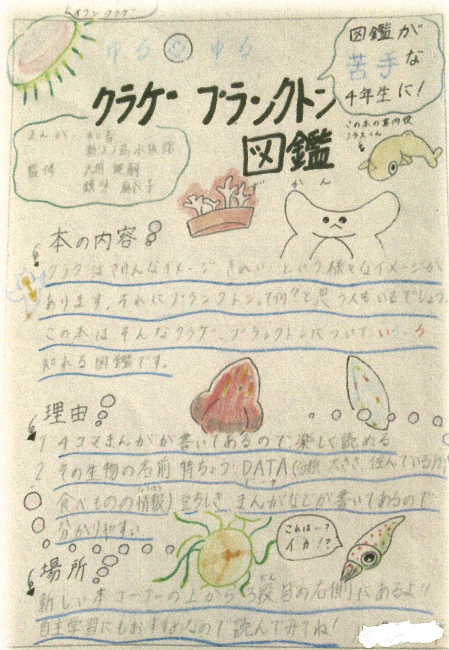 ゆるゆる
図鑑が
苦手な
4年生に!
クラゲ プランクトン
図鑑
ずかん
まんが
監修
本の内容
クラゲはきけんなイメージ きれいという様々なイメージが
あります。それにプランクトンって何?と思う人もいるでしょう。
この本はそんなクラゲ、プランクトンについて
知れる図鑑です。
理由
1 4コマまんがが書いてあるので楽しく読める
2 その生物の名前 特ちょう DATA(分類 大きさ 住んでいる所
食べものの情報)豆ちしき まんがなどが書いてあるので
分かりやすい
これは…?
イカ!?
場所
新しい本コーナーの上から3段目の右側にあるよ!!
自主学習にもおすすめなので読んでみてね!